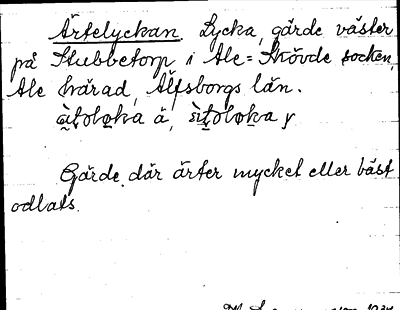 Ärtelyckan. Lycka, gärde väster
på Stubbetorp i Ale=Skövde socken,
Ale härad, Älfsborgs län.
ä, y
Gärde, där ärter mycket eller bäst
odlats.